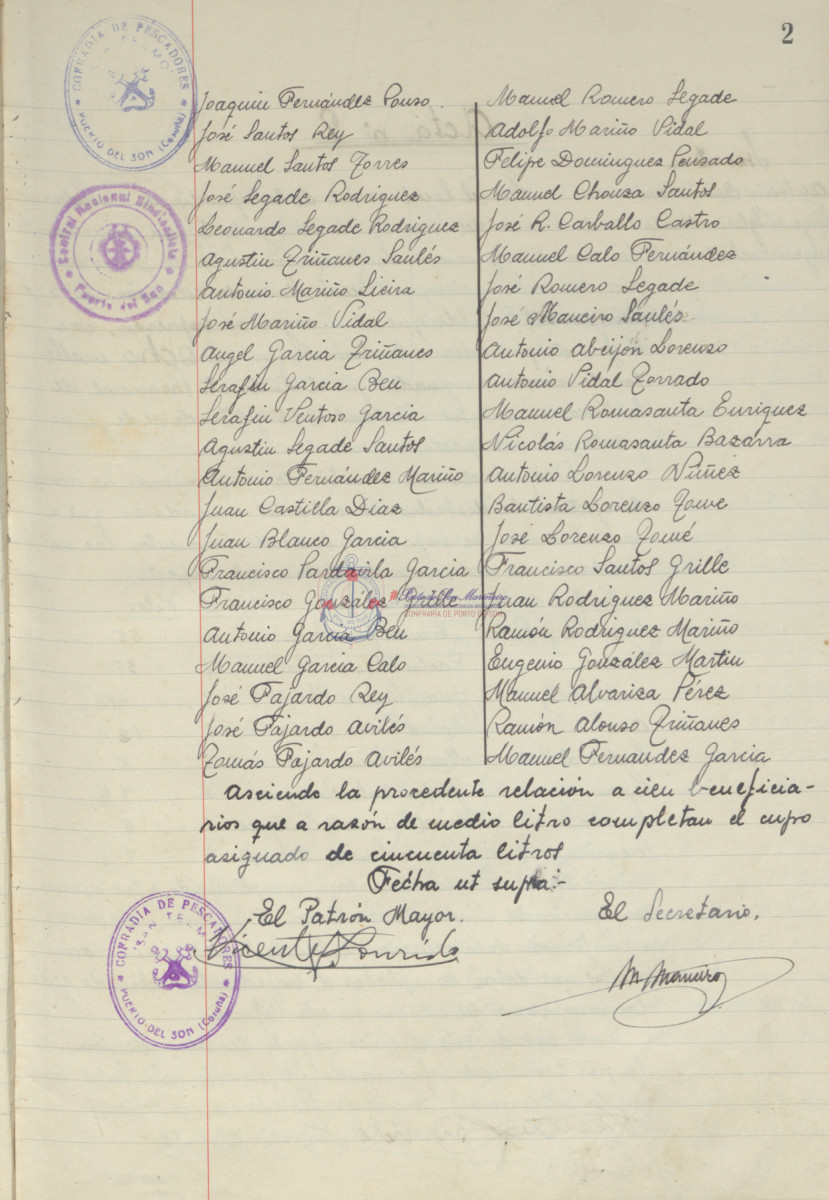 2
COFRADIA DE PESCADORES
"SAN TELMO"
PUERTO DEL SON (Coruña)
Central Nacional Sindicalista
Puerto del Son
Joaquin Fernández Pouso.
José Santos Rey
Manuel Santos Torres
José Segade Rodriguez
Leonardo Segade Rodriguez
Agustin Triñanes Saulés
Antonio Mariño Lieira
José Mariño Vidal
Angel Garcia Triñanes
Serafin Garcia Ben
Serafin Ventoso Garcia
Agustin Segade Santos
Antonio Fernández Mariño
Juan Castilla Diaz
Juan Blanco Garcia
Francisco Pardavila Garcia
Francisco González Grille
Antonio Garcia Ben
Manuel Garcia Calo
José Fajardo Rey
José Fajardo Avilés
Tomás Fajardo Avilés
Manuel Romero Segade
Adolfo Mariño Vidal
Felipe Dominguez Pensado
Manuel Chouza Santos
José R. Carballo Castro
Manuel Calo Fernández
José Romero Segade
José Maneiro Saulés
Antonio Abeijón Lorenzo
Antonio Vidal Torrado
Manuel Romasanta Enriquez
Nicolás Romasanta Bazarra
Antonio Lorenzo Niñez
Bautista Lorenzo Tome
José Lorenzo Tomé
Francisco Santos Grille
Juan Rodriguez Mariño
Ramón Rodriguez Mariño
Eugenio González Martin
Manuel Alvariza Pérez
Ramón Alonso Triñanes
Manuel Fernandez Garcia
CONFRARIA DE PORTO DO SON
Asciende la procedente relación a cien beneficia-
rios que a razón de medio litro completan el cupo
asignado de cincuenta litros
Fecha ut supra.-
El Patrón Mayor.
El Secretario,
Vicente
M. Maneiro
COFRADIA DE PESCADORES
"SAN TELMO"
PUERTO DEL SON (Coruña)